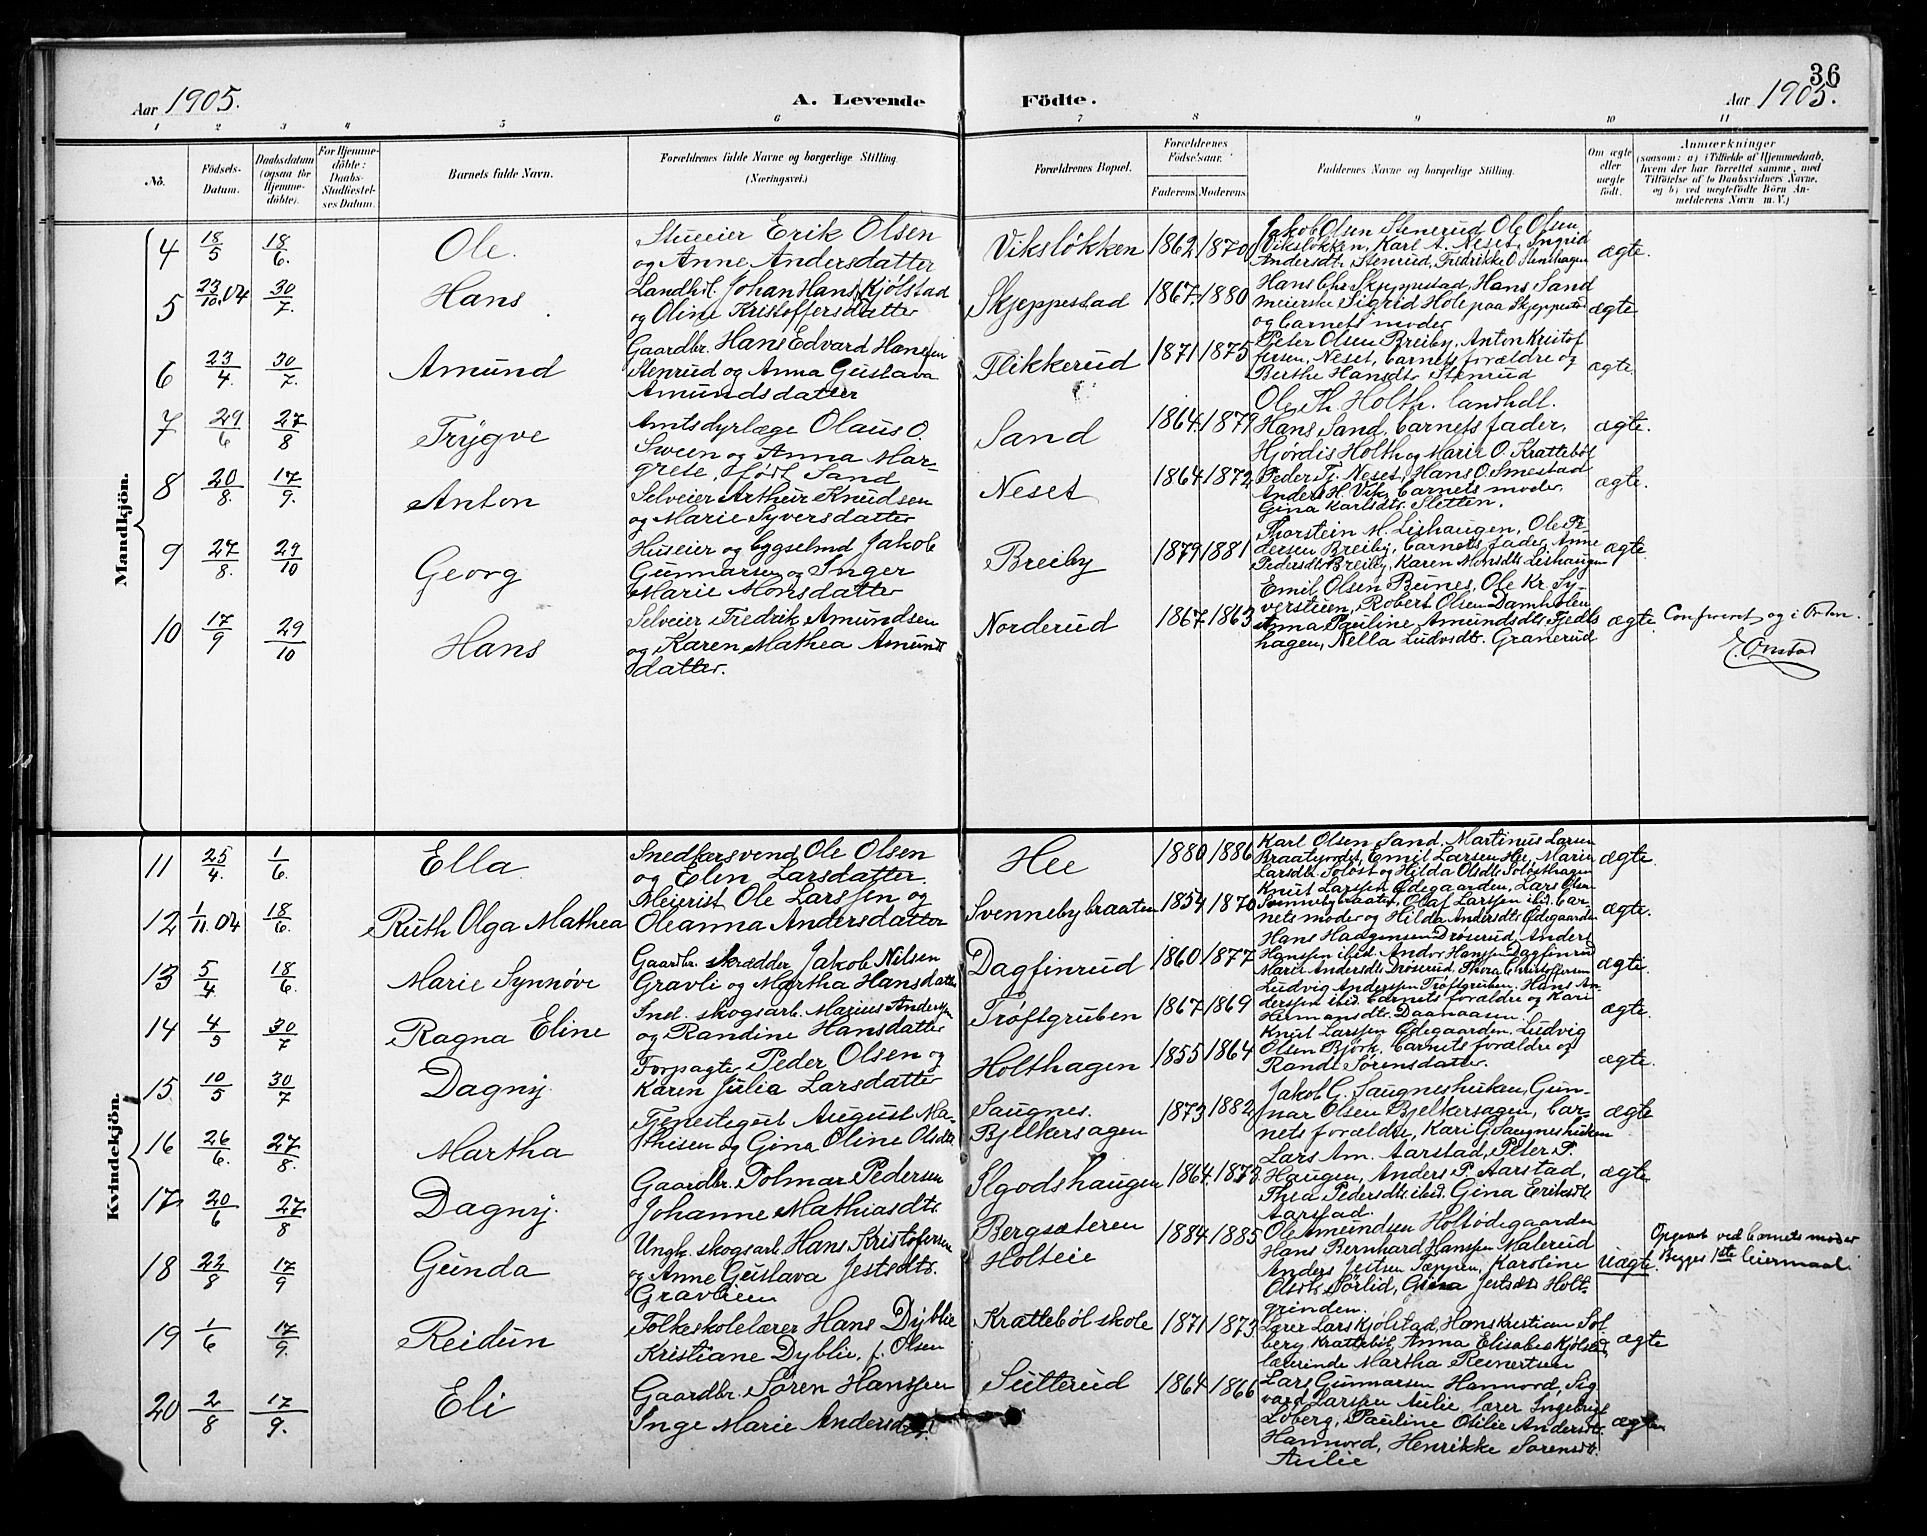 36
Aar 1905.
A. Levende Födte.
Aar 1905.
1 2 3 4 5 6 7 8 9 10 11
No.
Födsels-
Datum.
Daabsdatum
(ogsaa for
Hjemme-
döbte).
For Hjemme-
döbte:
Daabs-
Stadfæstel-
ses Datum.
Barnets fulde Navn.
Forældrenes fulde Navne og borgerlige Stilling.
(Næringsvei.)
Forældrenes Bopæl.
Forældrenes
Födselsaar.
Faderens. Moderens.
Faddernes Navne og borgerlige Stilling.
Om ægte
eller
uægte
födt.
Anmærkninger
(saasom: a) i Tilfælde af Hjemmedaab,
hvem der har forrettet samme, med
Tilföielse af to Daabsvidners Navne,
og b) ved uegtefödte Börn An-
melderens Navn m. V.)
Mandkjön.
4 18/5 18/6. Ole.
Stueeier Erik Olsen
og Anne Andersdatter
Viksløkken 1862 1870
Jakob Olsen Stenerud Ole Olsen
Viksløkken, Karl A. Neset, Ingrid
Andersdt. Stenrud, Fredrikke O. Stenshagen
ægte.
5 23/10.04 30/7. Hans
Landhdl. Johan Hans. Kjølstad
og Oline Kristoffersdatter
Skjeppestad 1867. 1880
Hans Chr. Skjeppestad, Hans Sand
meierske Sigrid Hole paa Skjeppestad
og barnets moder
ægte
6 23/4. 30/7. Amund
Gaardbr. Hans Edvard Hanssen
Stenrud og Anna Gustava
Amundsdatter
Flikkerud 1871 1875
Peter Olsen Breiby, Anton Kristof
fersen, Neset, barnets forældre og
Berthe Hansdt. Stenrud
ægte.
7 29/6 27/8 Trygve
Amtsdyrlæge Olaus O.
Sween og Anna Mar-
grete, født Sand
Sand 1864. 1879
Ole Th. Holth. landhdl.
Hans Sand, barnets fader,
Hjørdis Holth og Marie O. Krattebøl
ægte.
8 20/8. 17/9. Anton
Selveier Arthur Knudsen
og Marie Syversdatter
Neset 1864 1872
Peder Tj. Neset, Hans O. Smestad
Anders H. Vik, barnets moder,
Gina Karlsdt. Sletten.
ægte.
9 27/8. 29/10 Georg
Huseier og bygselmd Jakob
Gunnarsen og Inger
Marie Monsdatter
Breiby 1879 1881
Thorstein M. Lishaugen, Ole Pe-
dersen Breiby, barnets fader, Anne
Pedersdt. Breiby, Karen Monsdt. Lishaugen
ægte
10 17/9 29/10 Hans
Selveier Fredrik Amundsen
og Karen Mathea Amunds
datter.
Norderud 1867. 1863
Emil Olsen Bunes, Ole Kr. Sy-
verstuen, Robert Olsen Damholen
Anna Pauline Amundsdt. Fjelds
hagen, Nella Ludvsdt. Granerud
ægte
Confereret og i Orden.
E. Onstad
Kvindekjön.
11 25/4. 1/6. Ella
Snedkersvend Ole Olsen
og Elen Larsdatter
Hee 1880 1886
Karl Olsen Sand, Martinus Larsen
Braatyndet, Emil Larsen Hee, Marie
Larsdt. Soløst og Hilda Olsdt. Soløsthagen
ægte.
12 1/11.04 18/6. Ruth Olga Mathea
Meierist Ole Larssen og
Oleanna Andersdatter
Svennebybraaten 1854 1870
Knut Larssen Ødegaarden, Lars Olsen
Svennebybraaten, Olaf Larssen ibid. bar-
nets moder og Hilda Andersdt. Ødegaarden
ægte.
13 5/4 18/6. Marie Synnøve
Gaardbr. skrædder Jakob Nilsen
Gravli og Martha Hansdatter
Dagfinrud 1860 1877
Hans Haagensen Drøserud, Anders
Hanssen ibid. Andor Hanssen Dagfinrud
Marie Andersdt. Drøserud, Thora Christoffersen
ægte
14 4/5 30/7 Ragna Eline
Ind. skogsarb. Marius Andersen
og Randine Hansdatter
Trøftgruben 1867 1869
Ludvig Anderssen Trøftgruben, Hans An-
derssen ibid. barnets forældre og Kari
Hermansdt. Daanaasen.
ægte.
15 10/5 30/7 Dagny
Forpagter Peder Olsen og
Karen Julia Larsdatter
Holthagen 1855 1864
Knut Larssen Ødegaarden, Ludvig
Olsen Bjørk, barnets forældre og
Randi Sørensdatter.
ægte.
16 26/6. 27/8. Martha
Tjenestegut August Ma-
thisen og Gina Oline Olsdt.
Saugnes.
Bjelkersagen 1873 1882
Jakob G. Saugneshuken, Gun-
nar Olsen Bjelkersagen, bar-
nets forældre, Kari G. Saugneshuken
ægte
17 20/6 27/8 Dagny.
Gaardbr. Polmar Pedersen
Johanne Mathiasdt.
Slgodshaugen 1864. 1873.
Lars Am. Aarstad, Peter P.
Haugen, Anders P. Aarstad,
Thea Pedersdt. ibid. Gina Eriksdt.
Aarstad.
ægte
18 22/8 17/9 Gunda
Ungk. skogsarb. Hans Kristofersen
og Anne Gustava Jestsdt.
Gravlien
Bergsæteren
Holteie 1884 1885
Ole Amundsen Holtødegaarden
Hans Bernhard Hanssen Malerud
Anders Jestsen Sæppen, Karoline
Olsdt. Sørlid, Gina Jestsdt. Holt-
grinden.
uægte.
Opgivet ved barnets moder
Begges 1ste leiermaal.
19 1/6 17/9. Reidun
Folkeskolelærer Hans Dyblie
Kristiane Dyblie, f. Olsen
Krattebøl skole 1871 1873
Lærer Lars Kjølstad, Hans Kristian Sol
berg Krattebøl, Anna Elisabet Kjølstad,
lærerinde Martha Reinertsen
ægte
20 2/8 17/9. Eli
Gaardbr. Søren Hanssen
Inge Marie Andersdt.
Sutterud 1864 1866
Lars Gunnarsen Hannord, Sig
vard Larssen Aulie, lærer Ingebrigt
Løberg, Pauline Otilie Andersdt.
Hannord, Henrikke Sørensdt.
Aulie
ægte